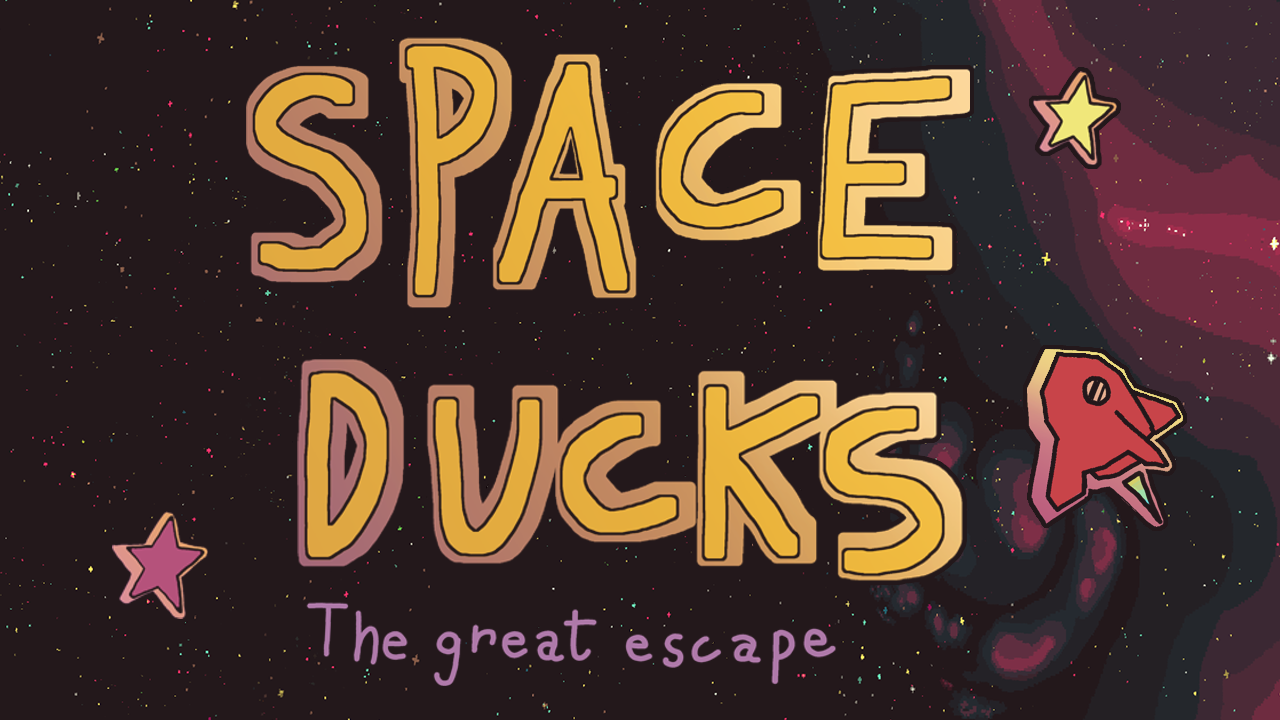 SPACE
DUCKS
The great escape